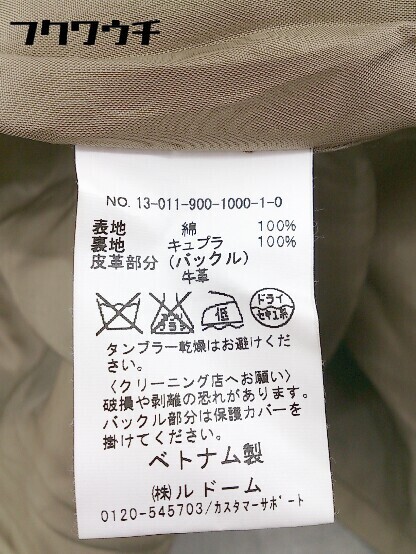 フクワウチ
NO. 13-011-900-1000-1-0
表地 綿 100%
裏地 キュプラ 100%
皮革部分 (バックル)
牛革
エンソサラシ
低
ドライ
セキユ系
タンブラー乾燥はお避けくだ
さい。
〈クリーニング店へお願い〉
破損や剥離の恐れがあります。
バックル部分は保護カバーを
掛けてください。
ベトナム製
㈱ルドーム
0120-545703/カスタマーサポート